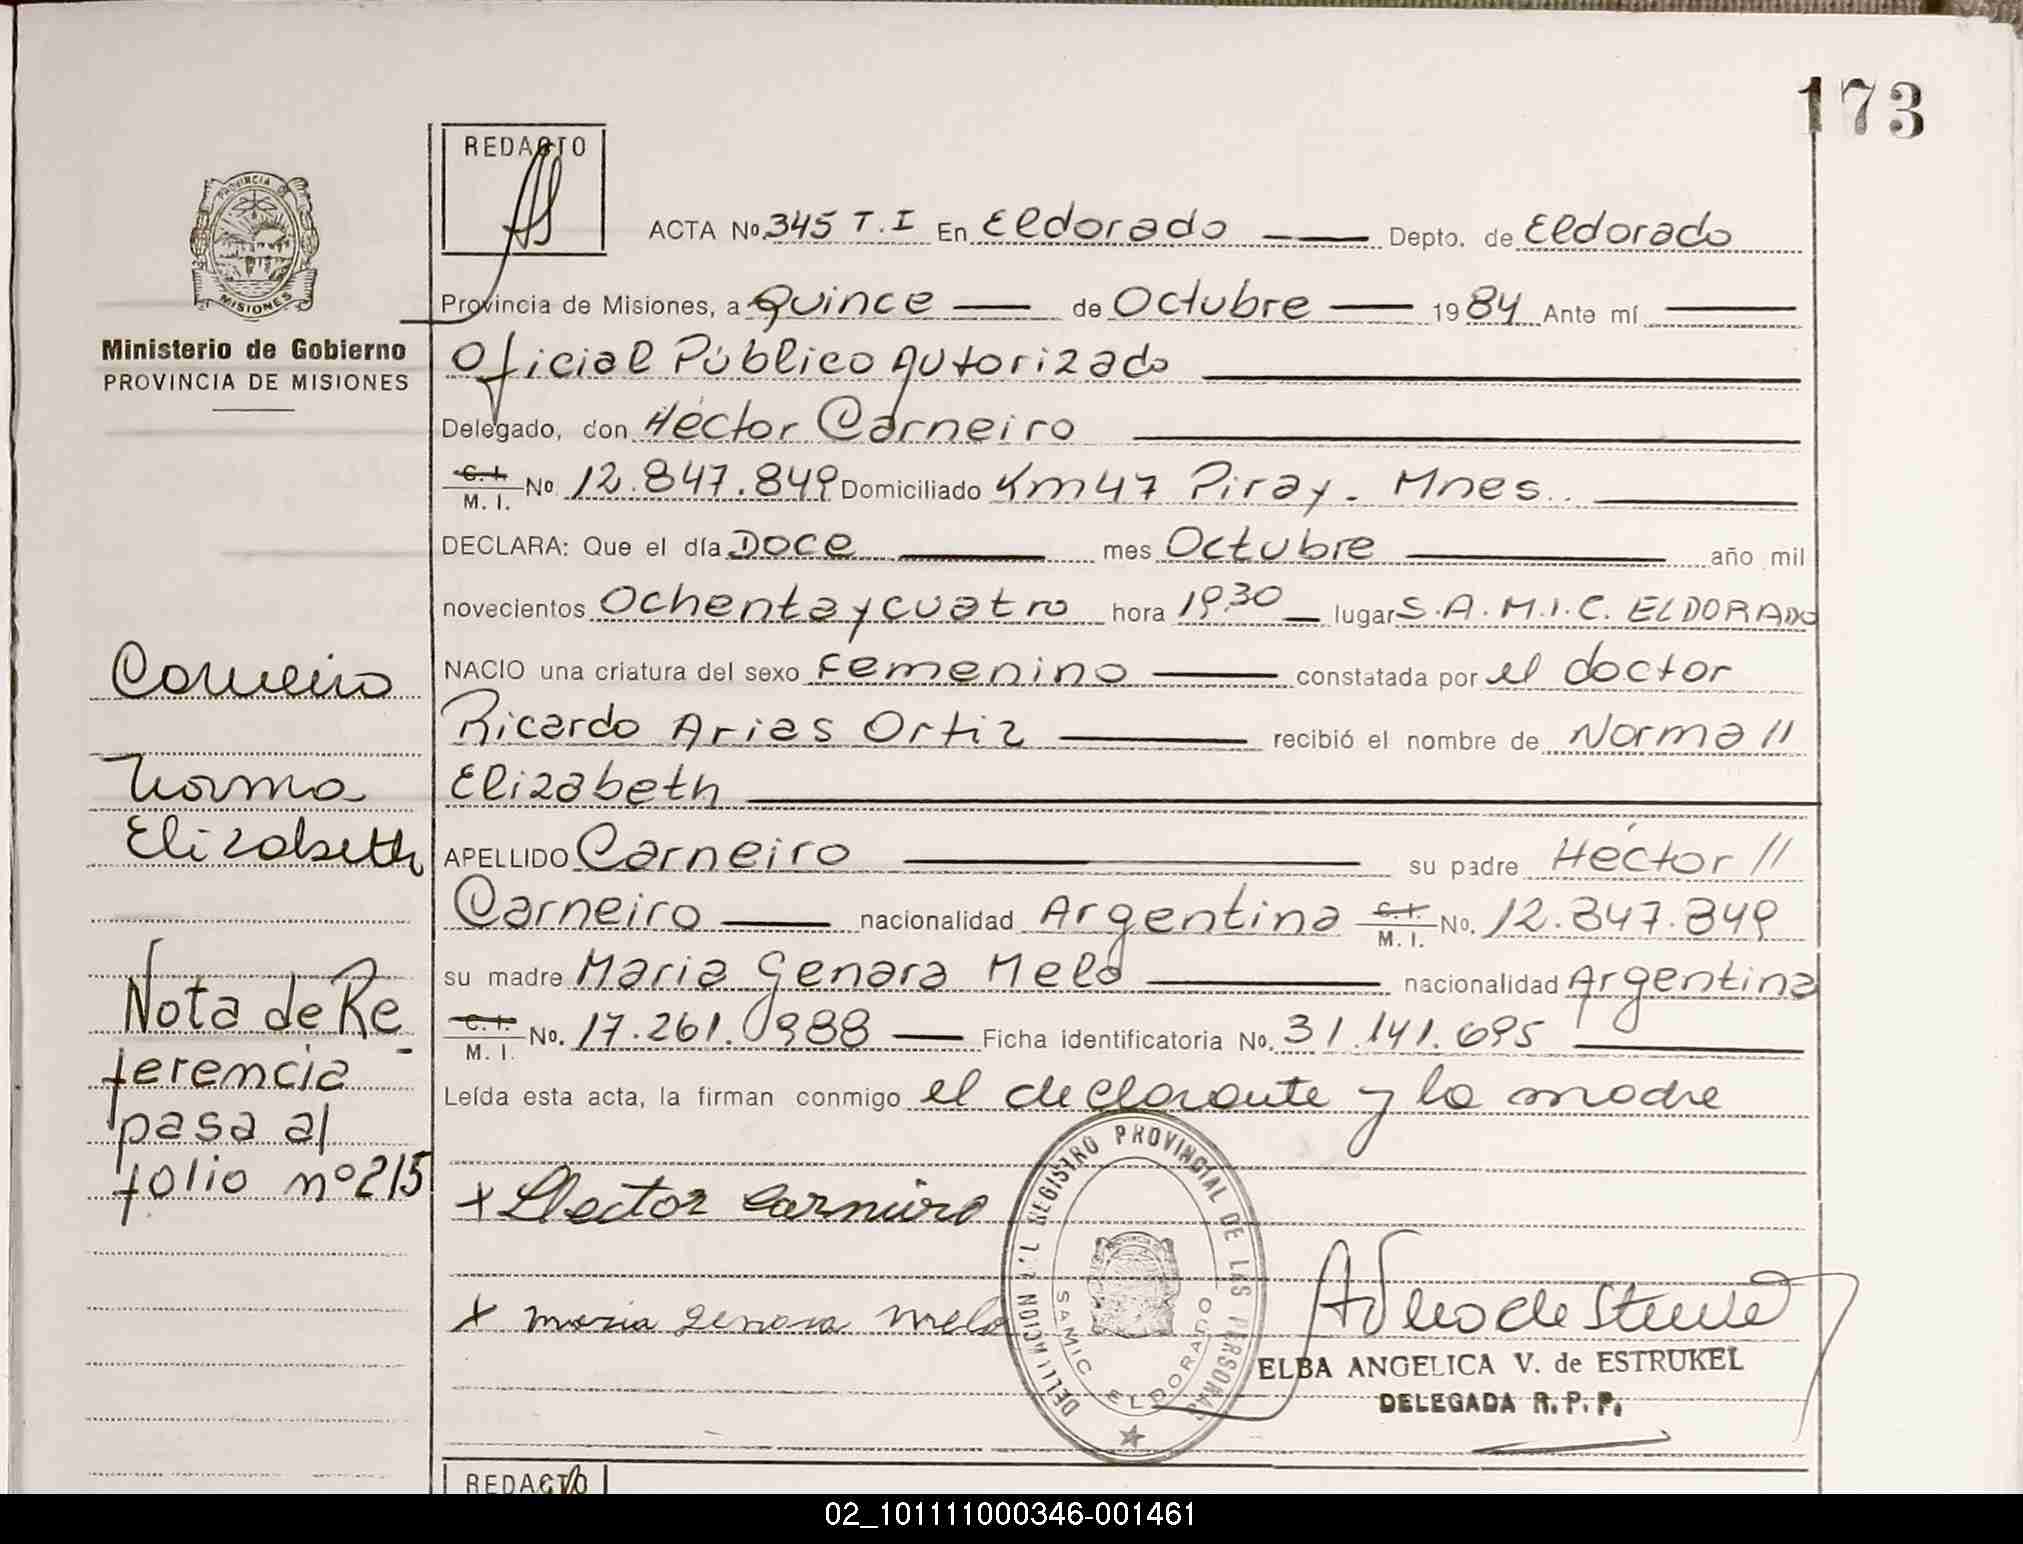 173
REDACTO
ACTA No. 345 T.I En Eldorado Depto. de Eldorado
Provincia de Misiones, a Quince de Octubre 1984 Ante mí
Oficial Público Autorizado
Delegado, don Héctor Carneiro
C. I. M. I. No 12.847.849 Domiciliado Km 47 Piray. Mnes.
DECLARA: Que el día Doce mes Octubre año mil
novecientos Ochenta y cuatro hora 19.30 lugar S.A.M.I.C. ELDORADO
NACIO una criatura del sexo Femenino constatada por el doctor
Ricardo Arias Ortiz recibió el nombre de Norma //
Elizabeth
APELLIDO Carneiro su padre Héctor //
Carneiro nacionalidad Argentina C. I. M. I. No. 12.847.849
su madre Maria Genara Melo nacionalidad Argentina
C. I. M. I. No. 17.261.988 Ficha identificatoria No. 31.141.695
Leída esta acta, la firman conmigo el declarante y la madre
x Hector Carneiro
x maria genara melo
PROVINCIA DE
MISIONES
Ministerio de Gobierno
PROVINCIA DE MISIONES
Carneiro
Norma
Elizabeth
Nota de Re
ferencia
pasa al
folio nº 215
REGISTRO PROVINCIAL DE LAS PERSONAS
SAMIC ELDORADO
ELBA ANGELICA V. de ESTRUKEL
DELEGADA R. P. P.
REDACTO
02_101111000346-001461